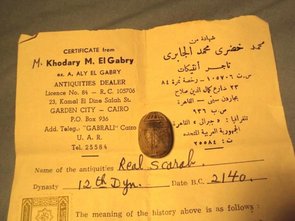 CERTIFICATE from
M. Khodary M. El Gabry
ex. A. ALY EL GABRY
ANTIQUITIES DEALER
Licence No. 84 - R.C. 105706
23, Kamel El Dine Salah St.
GARDEN CITY - CAIRO
P.O. Box 936
Add. Teleg. "GABRALI" Cairo
U. A. R.
Tel. 25584
شهادة من
محمد خضرى محمد الجابرى
تاجر أنتيكات
٢٣ شارع كمال الدين صلاح
جاردن سيتى - القاهرة
ص.ب ٩٣٦
الجمهورية العربية المتحدة
Name of the antiquities Real scarab.
Dynasty 12th Dyn. Date B.C. 2140.
The meaning of the history above is as follows :